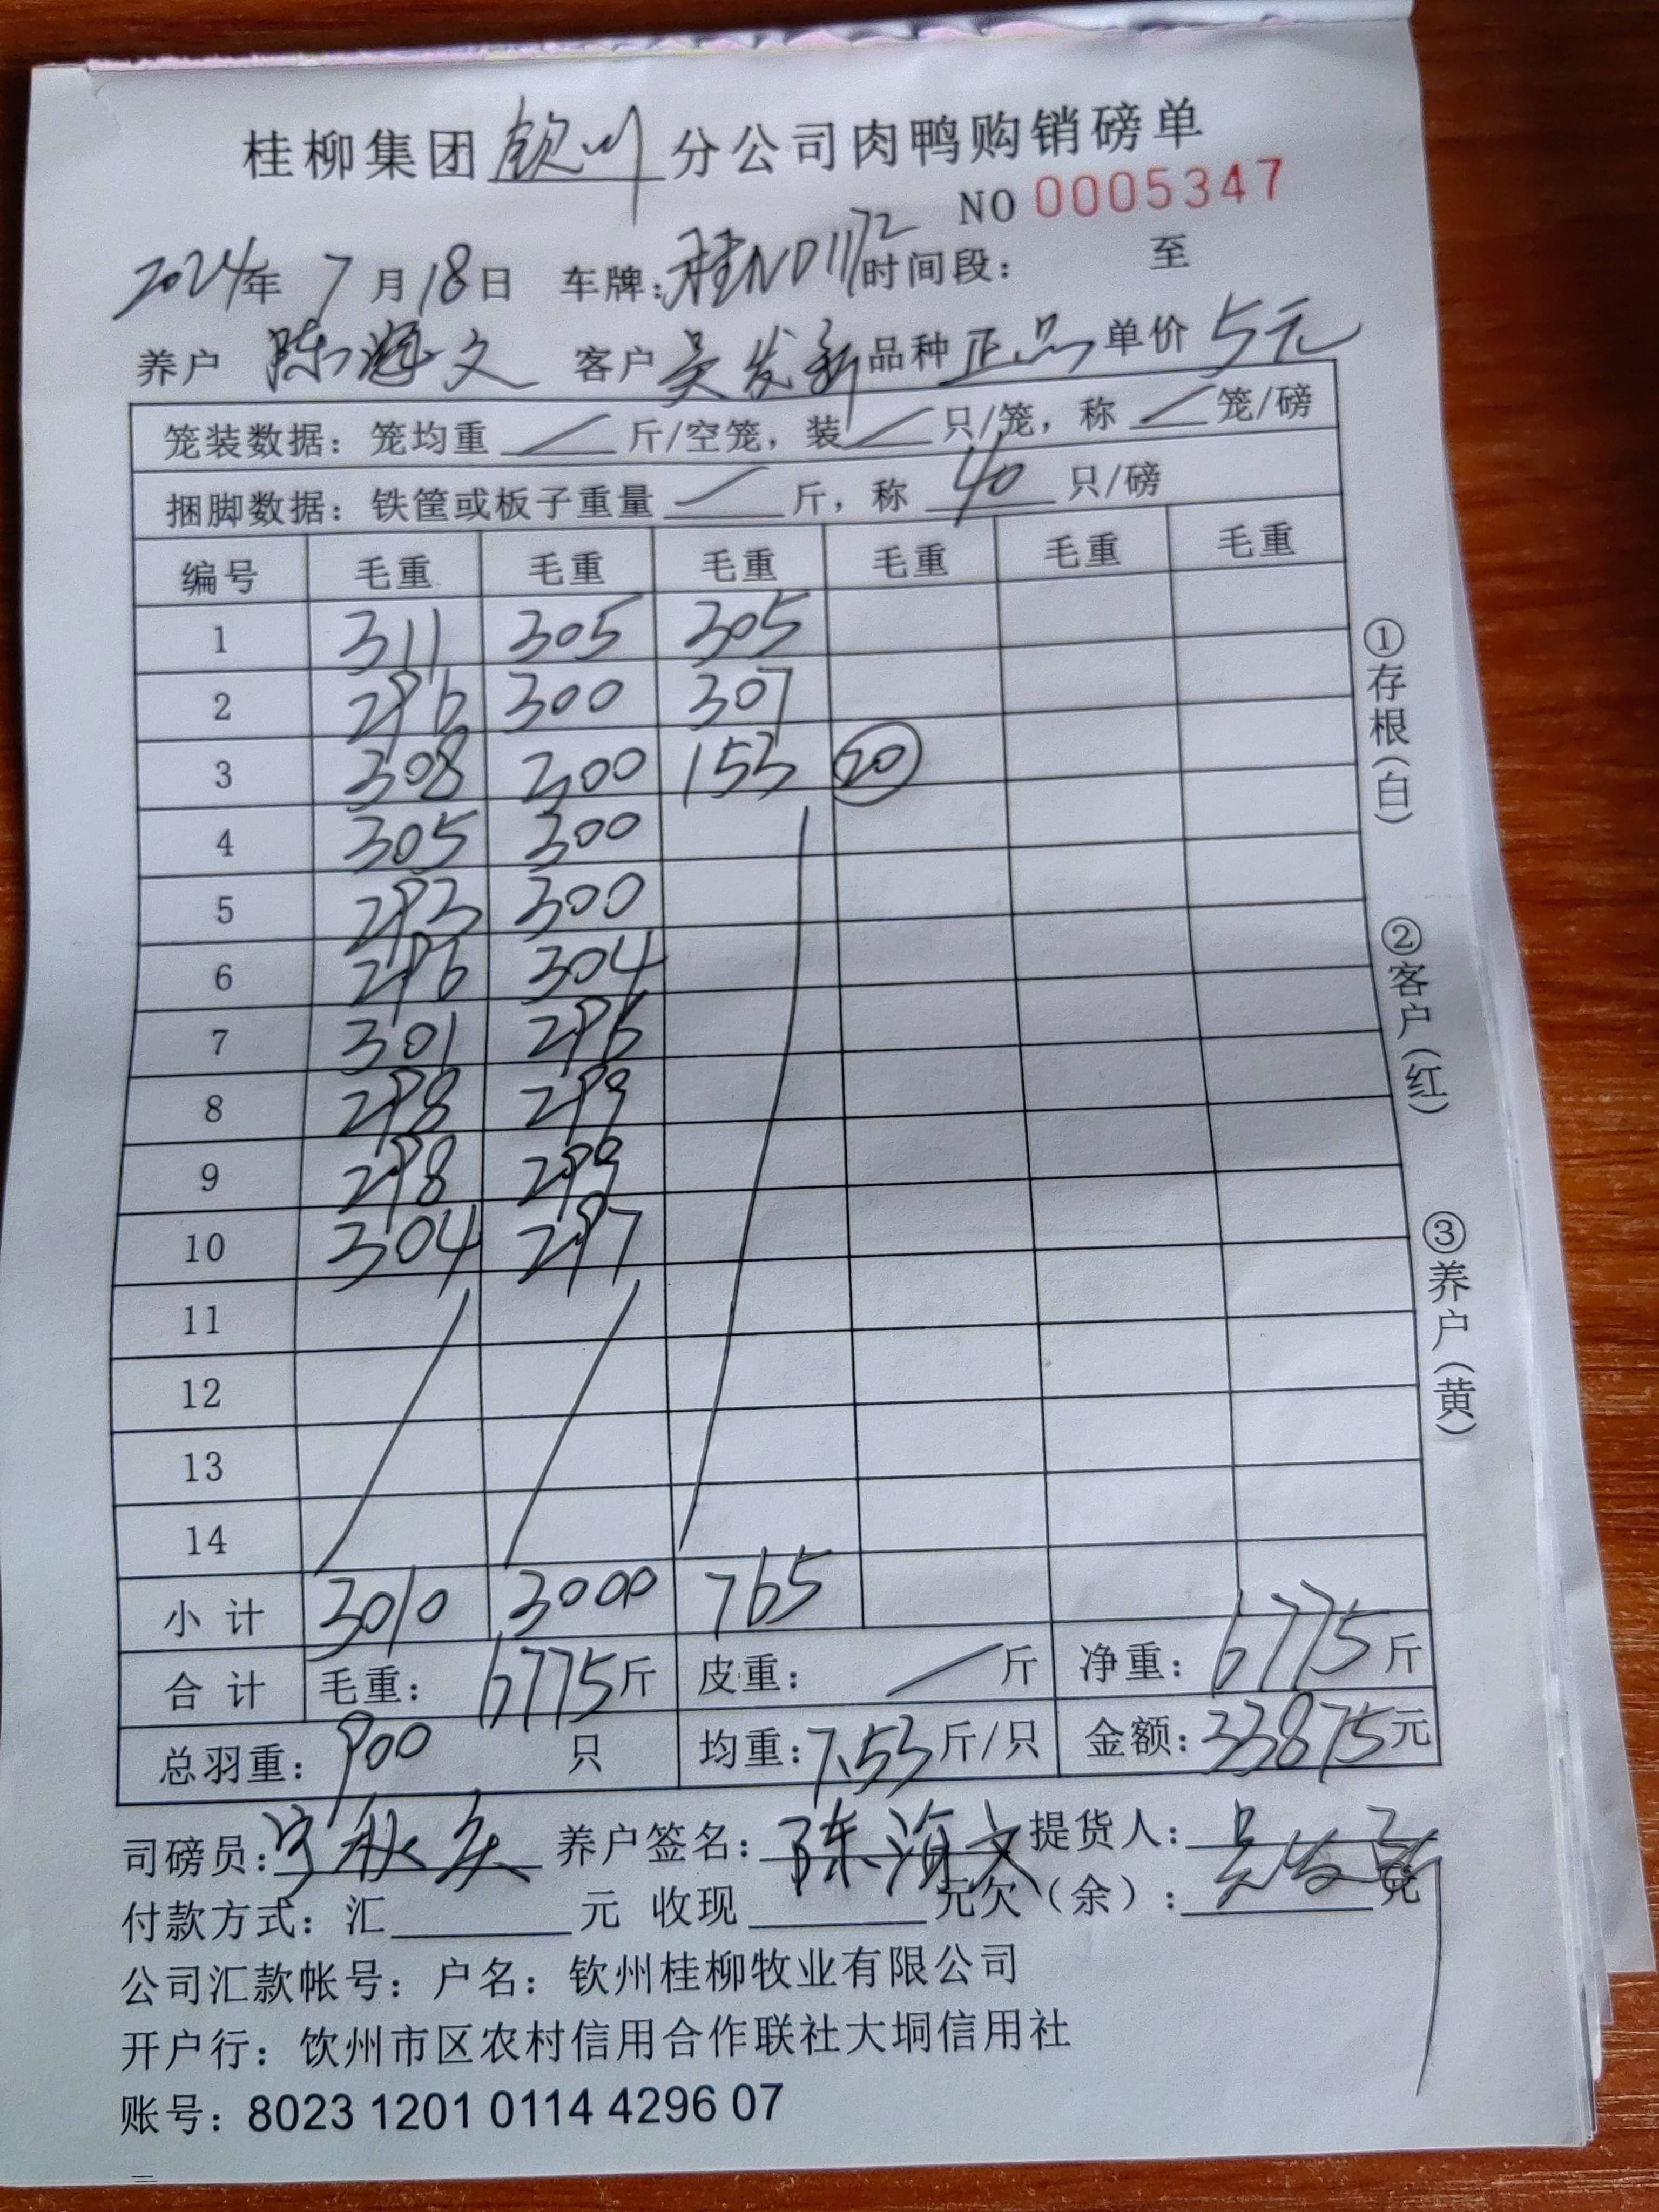 桂柳集团钦州分公司肉鸭购销磅单
NO 0005347
2024年 7月18日 车牌:桂ND1172 时间段: 至
养户 陈海文 客户 吴发新 品种 正品 单价 5元
笼装数据: 笼均重 / 斤/空笼, 装 / 只/笼, 称 / 笼/磅
捆脚数据: 铁筐或板子重量 / 斤, 称 40 只/磅
编号 毛重 毛重 毛重 毛重 毛重 毛重
1 311 305 305
2 296 300 307
3 308 300 153 20
4 305 300
5 293 300
6 296 304
7 301 296
8 298 299
9 298 299
10 304 297
11
12
13
14
小计 3010 3000 765
合计 毛重: 6775斤 皮重: / 斤 净重: 6775斤
总羽重: 900 只 均重: 7.53斤/只 金额: 33875元
司磅员: 宁秋 养户签名: 陈海文 提货人: 吴发新
付款方式: 汇 元 收现 元欠(余): 元
公司汇款帐号: 户名: 钦州桂柳牧业有限公司
开户行: 饮州市区农村信用合作联社大垌信用社
账号: 8023 1201 0114 4296 07
①存根(白)
②客户(红)
③养户(黄)